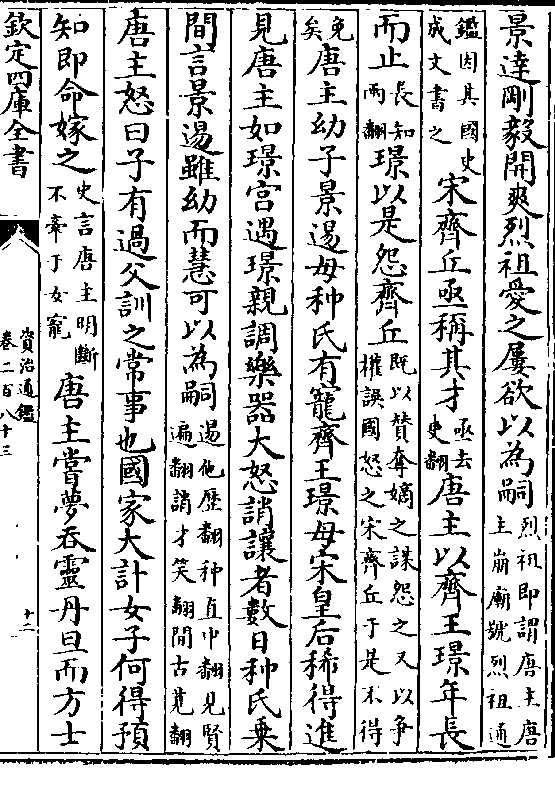 景達剛毅開爽烈祖愛之屢欲以為嗣烈祖即謂唐主唐主崩廟號烈祖通
鑑因其國史成文書之宋齊丘亟稱其才亟去吏翻唐主以齊王璟年長
而止長知兩翻璟以是怨齊丘既以贊奪嫡之謀怨之又以爭權誤國怒之宋齊丘于是不得
免矣唐主幼子景逷母种氏有寵齊王璟母宋皇后稀得進
見唐主如璟宮遇璟親調樂器大怒誚讓者數日种氏乗
間言景逷雖幼而慧可以為嗣逷他歴翻种直中翻見賢遍翻誚才笑翻間古莧翻
唐主怒曰子有過父訓之常事也國家大計女子何得預
知即命嫁之史言唐主明斷不牽于女寵唐主嘗夢吞靈丹旦而方士
欽定四庫全書
資治通鑑
卷二百八十三
十二